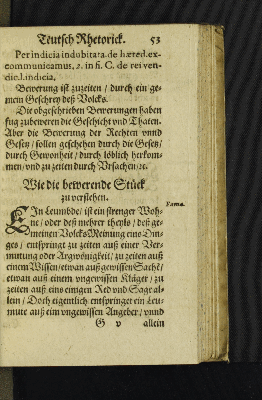 Teutsch Rhetorick. 53
Per indicia indubitata. de hæred. ex-
communicamus, 2. in fi. C. de rei ven-
dic. l. indicia.
Bewerung ist zuzeiten / durch ein ge-
mein Geschrey deß Volcks.
Die obgeschrieben Bewerungen haben
fug zubeweren die Geschicht vnd Thaten.
Aber die Bewerung der Rechten vnnd
Gesetz / sollen geschehen durch die Gesetz /
durch Gewonheit / durch löblich herkom-
men / vnd zu zeiten durch Vrsachen / ꝛc.
Wie die bewerende Stück
zu verstehen.
EIn Leumbde / ist ein strenger Woh-
ne / oder deß mehrer theyls / deß ge-
meinen Volcks Meinung eins Din-
ges / entspringt zu zeiten auß einer Ver-
muttung oder Argwönigkeit / zu zeiten auß
einem Wissen / etwan auß gewissen Sachē /
etwan auß einem vngewissen Kläger / zu
zeiten auß eins einigen Red vnd Sag al-
lein / Doch eigentlich entspringet ein Leu-
mute auß eim vngewissen Angeber / vnnd
G v allein
Fama.